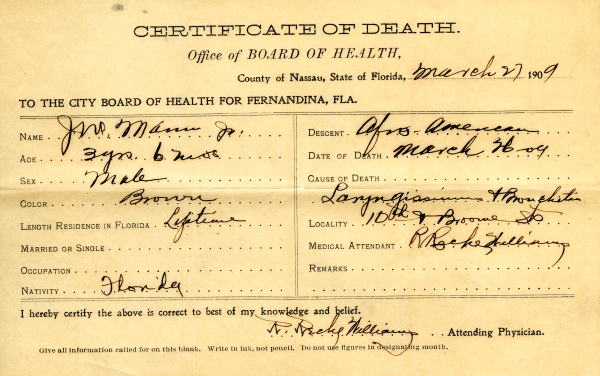 CERTIFICATE OF DEATH.
Office of BOARD OF HEALTH,
County of Nassau, State of Florida, March 27 1909
TO THE CITY BOARD OF HEALTH FOR FERNANDINA, FLA.
NAME Jno. Mann Jr.
AGE 3 yrs. 6 mos
SEX Male
COLOR Brown
LENGTH RESIDENCE IN FLORIDA Lifetime
MARRIED OR SINGLE
OCCUPATION
NATIVITY Florida
DESCENT Afro-American
DATE OF DEATH March 26 09
CAUSE OF DEATH
&
LOCALITY 10th & Broome St
MEDICAL ATTENDANT Williams
REMARKS
I hereby certify the above is correct to best of my knowledge and belief.
Williams Attending Physician.
Give all information called for on this blank. Write in ink, not pencil. Do not use figures in designating month.